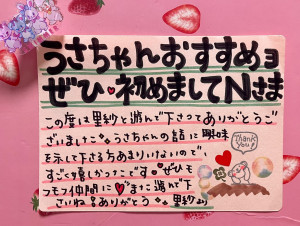 うさちゃんおすすめョ
ぜひ♥初めましてNさま
この度は里紗と遊んで下さってありがとうご
ざいましたෆうさちゃんの話に興味
を示して下さる方あまりいないので、
すごく嬉しかったです。ぜひモ
フモフ仲間に♥またご遊んで下
さいねෆありがとう。里紗より
Thank
you!